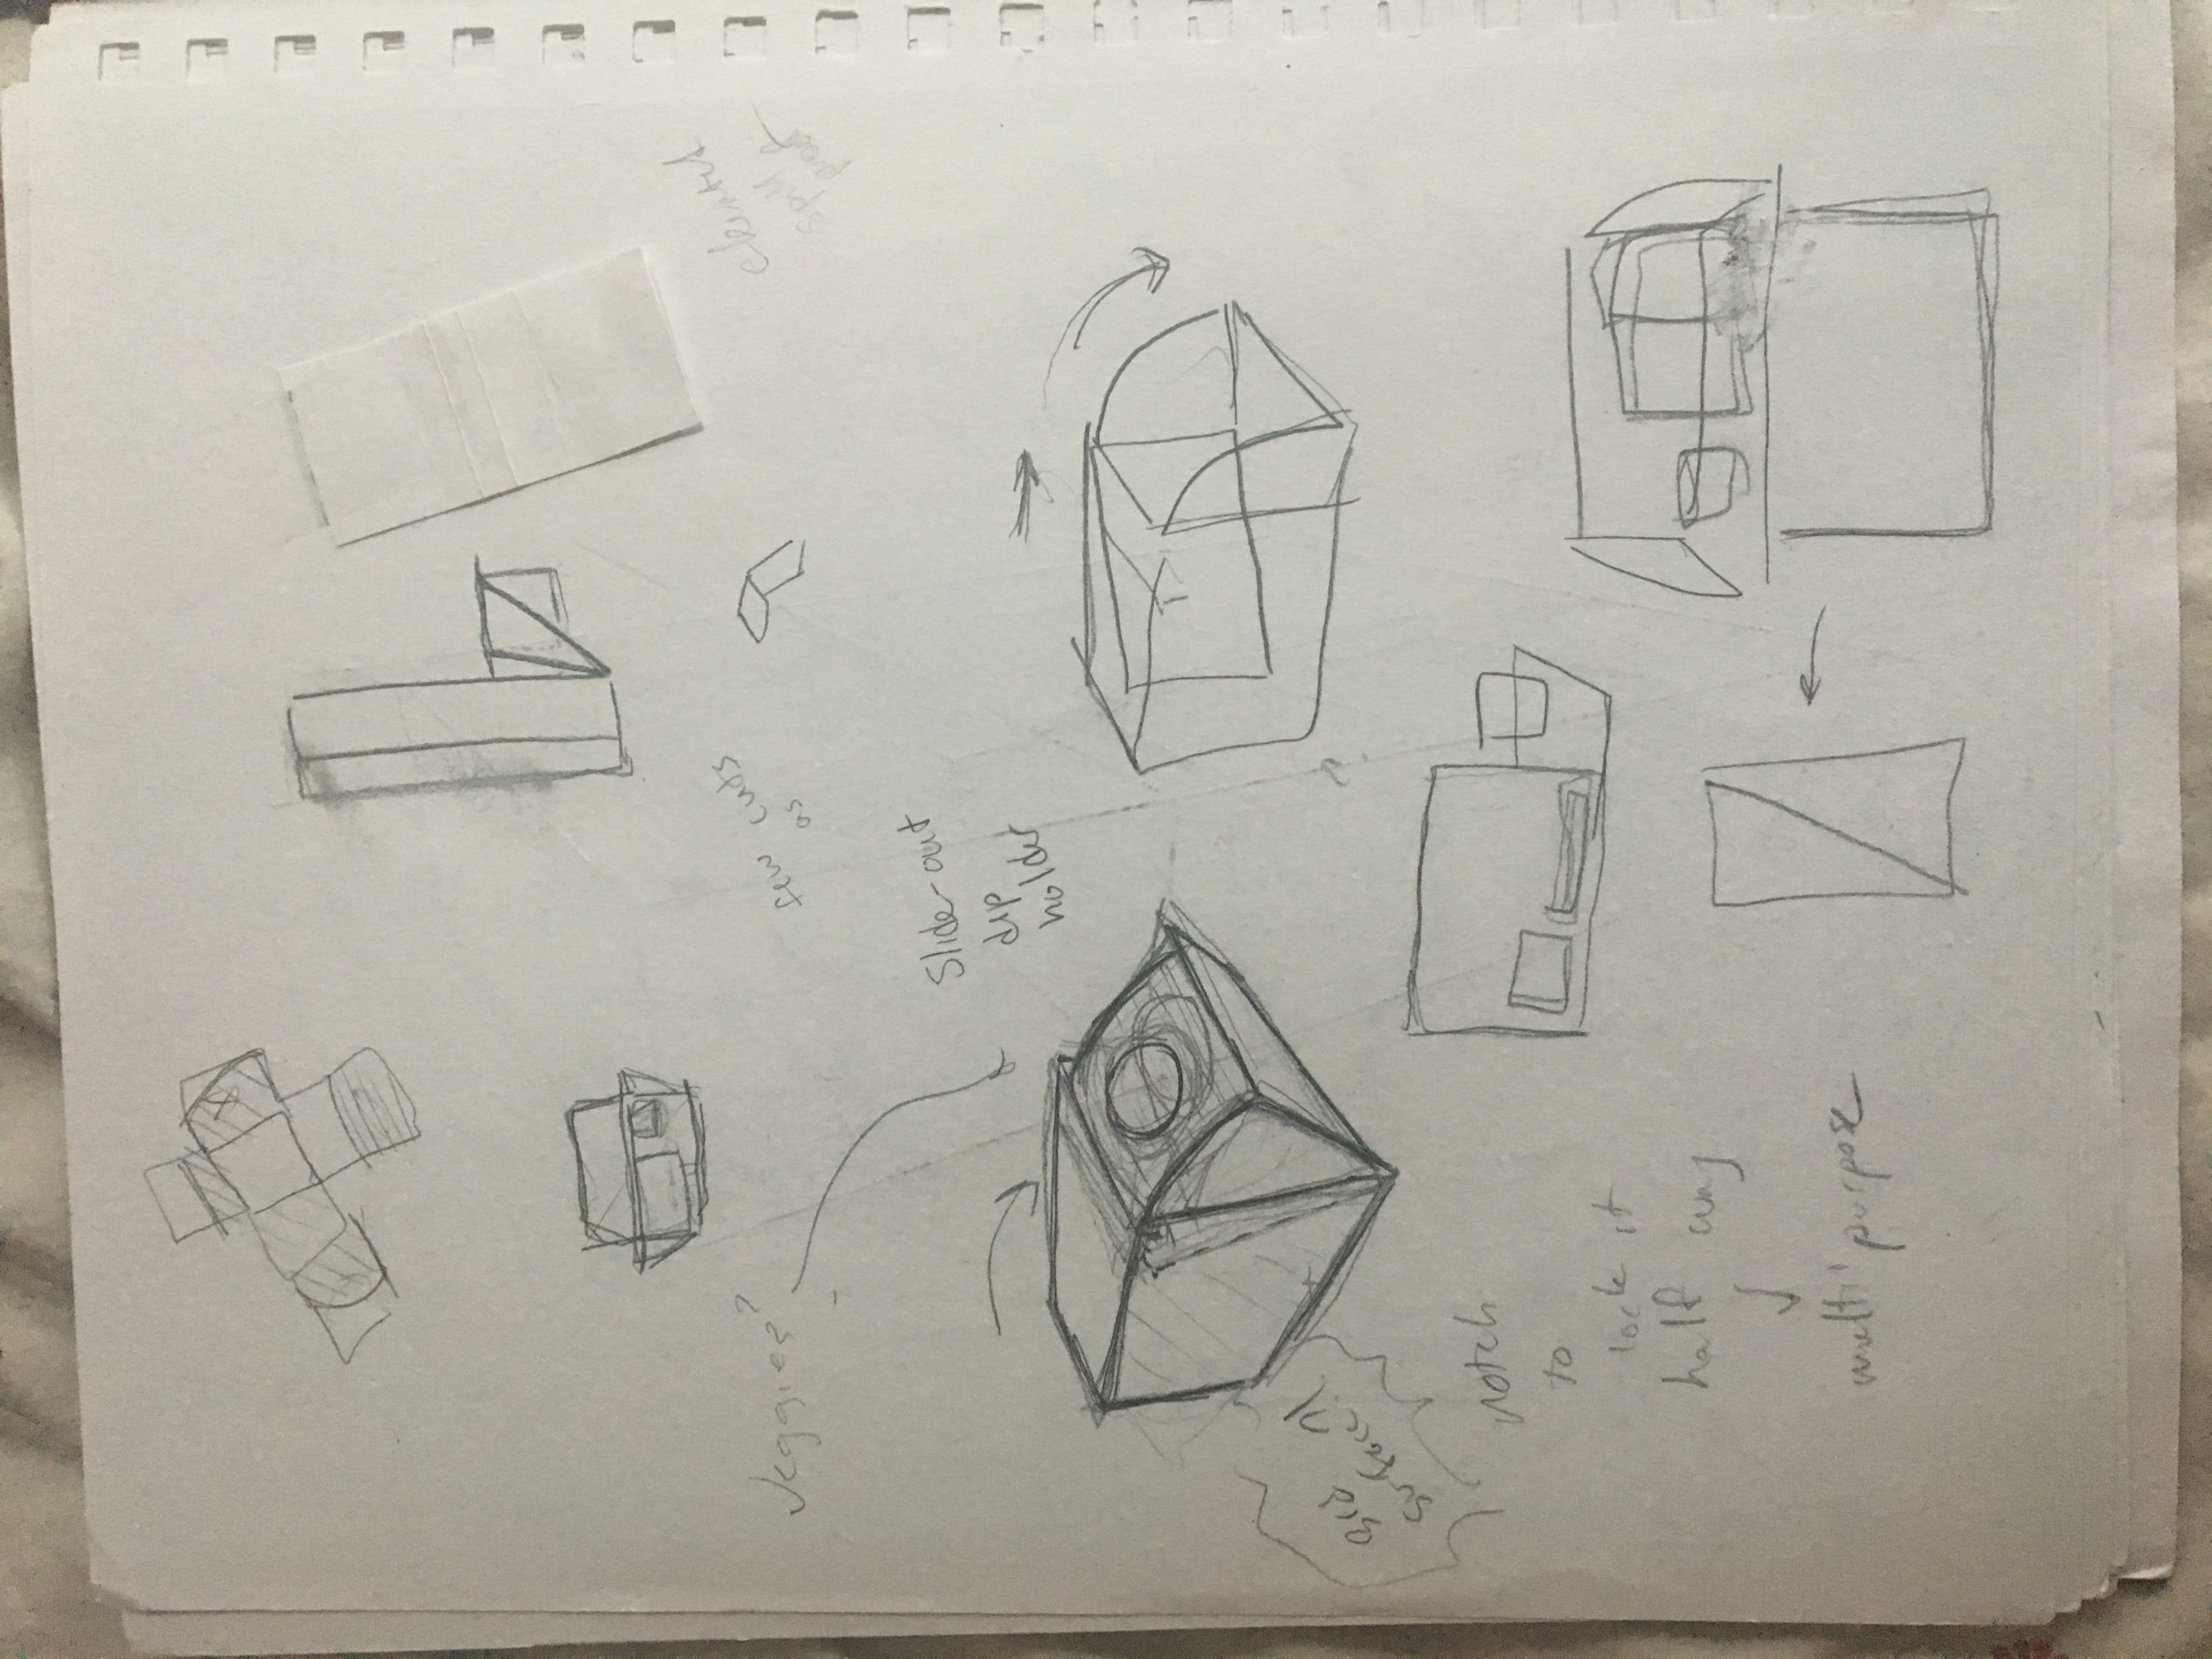 Veggies?
few cuts
as
spill
Slide-out
dip
holder
3rd
surface?!
notch
to
lock it
half way
↓
multi purpose